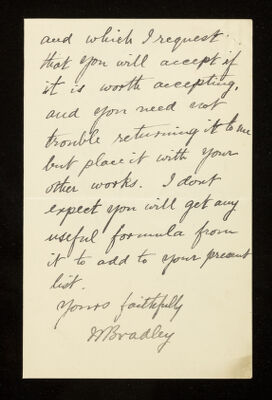 and which I request
that you will accept if
it is worth accepting,
and you need not
trouble returning it to me
but place it with your
other works. I dont
expect you will get any
useful formula from
it to add to your present
list.
Yours faithfully
Bradley